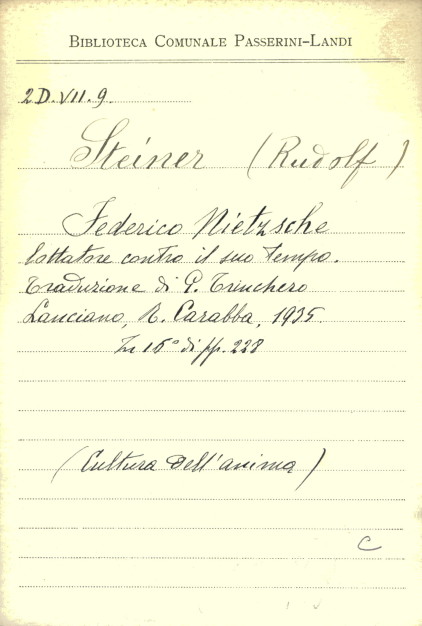 BIBLIOTECA COMUNALE PASSERINI-LANDI
2D.VII.9.
Steiner (Rudolf)
Federico Nietzsche
lottatore contro il suo tempo.
Traduzione di P. Trinchero
Lanciano, R. Carabba, 1935
In 16° di pp. 228
(Cultura dell'anima)
C